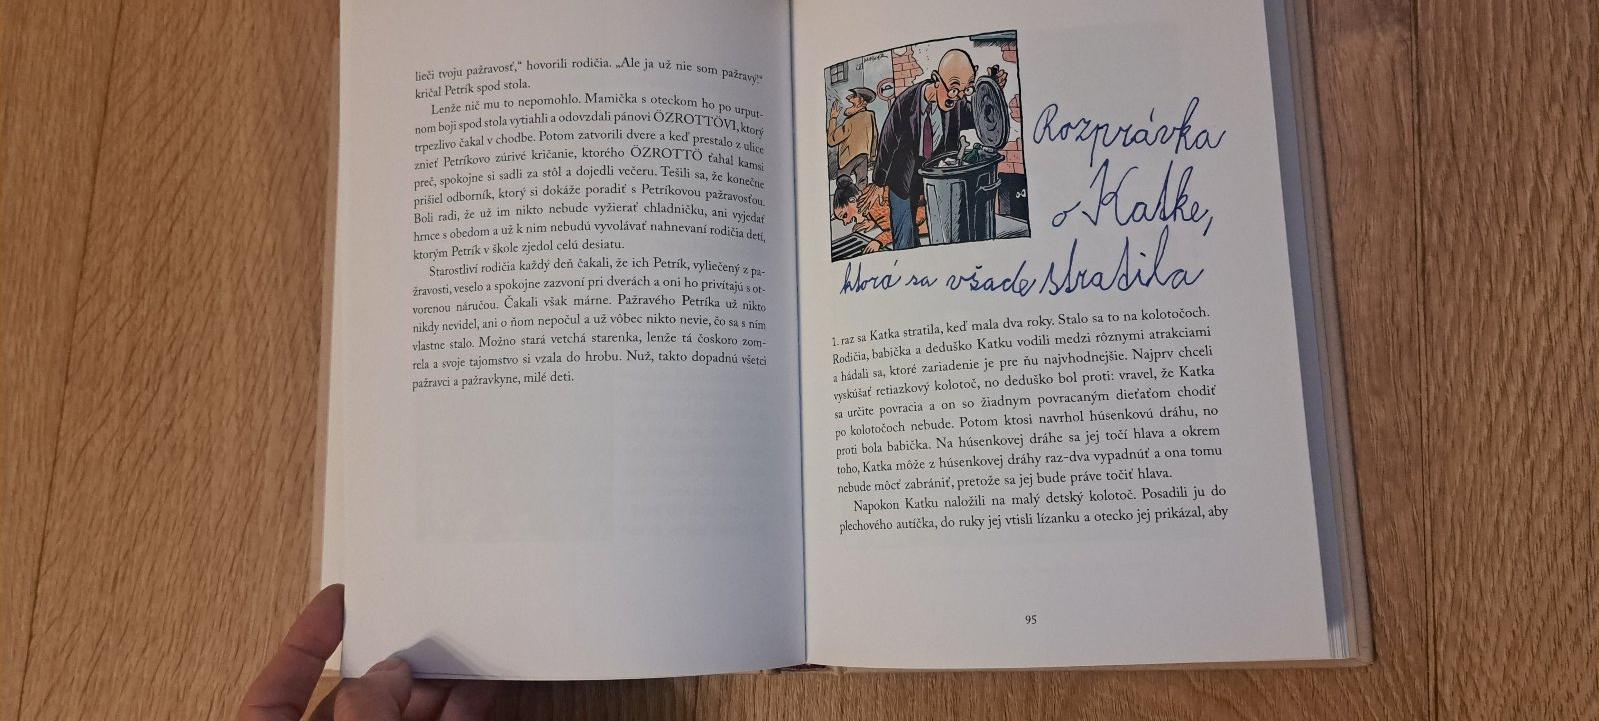 liečí tvoju pažravosť,“ hovorili rodičia. „Ale ja už nie som pažravý!“
kričal Petrík spod stola.
Lenže nič mu to nepomohlo. Mamička s oteckom ho po urput-
nom boji spod stola vytiahli a odovzdali pánovi ÖZROTTÖVI, ktorý
trpezlivo čakal v chodbe. Potom zatvorili dvere a keď prestalo z ulice
znieť Petríkovo zúrivé kričanie, ktorého ÖZROTTÖ ťahal kamsi
preč, spokojne si sadli za stôl a dojedli večeru. Tešili sa, že konečne
prišiel odborník, ktorý si dokáže poradiť s Petríkovou pažravosťou.
Boli radi, že už im nikto nebude vyžierať chladničku, ani vyjedať
hrnce s obedom a už k nim nebudú vyvolávať nahnevaní rodičia detí,
ktorým Petrík v škole zjedol celú desiatu.
Starostliví rodičia každý deň čakali, že ich Petrík, vyliečený z pa-
žravosti, veselo a spokojne zazvoní pri dverách a oni ho privítajú s ot-
vorenou náručou. Čakali však márne. Pažravého Petríka už nikto
nikdy nevidel, ani o ňom nepočul a už vôbec nikto nevie, čo sa s ním
vlastne stalo. Možno stará vetchá starenka, lenže tá čoskoro zom-
rela a svoje tajomstvo si vzala do hrobu. Nuž, takto dopadnú všetci
pažravci a pažravkyne, milé deti.
Rozprávka
o Katke,
ktorá sa všade stratila
1. raz sa Katka stratila, keď mala dva roky. Stalo sa to na kolotočoch.
Rodičia, babička a deduško Katku vodili medzi rôznymi atrakciami
a hádali sa, ktoré zariadenie je pre ňu najvhodnejšie. Najprv chceli
vyskúšať retiazkový kolotoč, no deduško bol proti: vravel, že Katka
sa určite povracia a on so žiadnym povracaným dieťaťom chodiť
po kolotočoch nebude. Potom ktosi navrhol húsenkovú dráhu, no
proti bola babička. Na húsenkovej dráhe sa jej točí hlava a okrem
toho, Katka môže z húsenkovej dráhy raz-dva vypadnúť a ona tomu
nebude môcť zabrániť, pretože sa jej bude práve točiť hlava.
Napokon Katku naložili na malý detský kolotoč. Posadili ju do
plechového autíčka, do ruky jej vtisli lízanku a otecko jej prikázal, aby
95